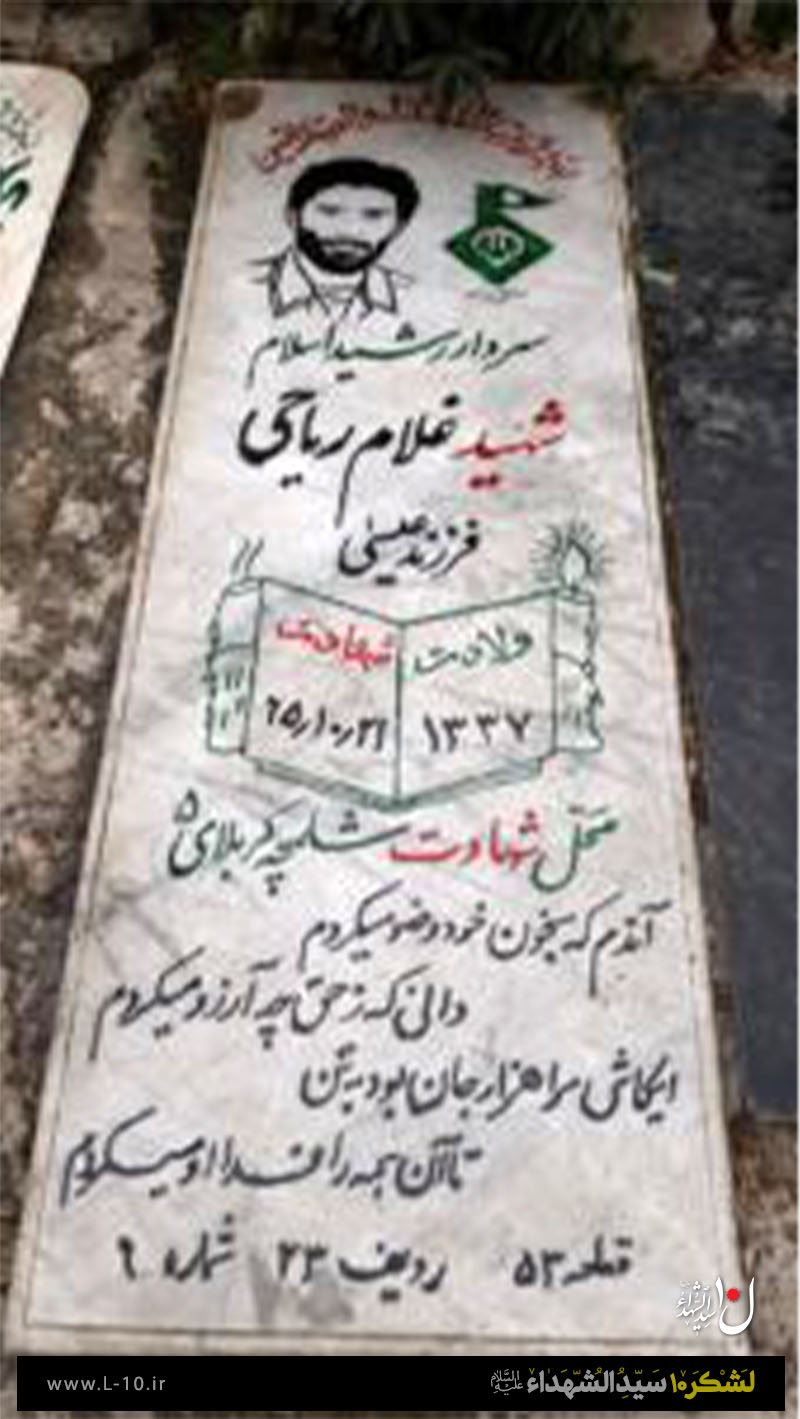 سردار رشید اسلام
شهید غلام رباحی
فرزند عیسی
ولادت شهادت
۱۳۳۷ ۶۵/۱۰/۲۱
محل شهادت شلمچه کربلای ۵
آندم که بخون خود وضو میکردم
دانی که ز حق چه آرزو میکردم
ایکاش مرا هزار جان بود به تن
تا آن همه را فدا او میکردم
قطعه ۵۳ ردیف ۲۳ شماره ۹
سیدالشهداء
لشکر۱۰ سیدالشهداء علیه السلام
www.L-10.ir